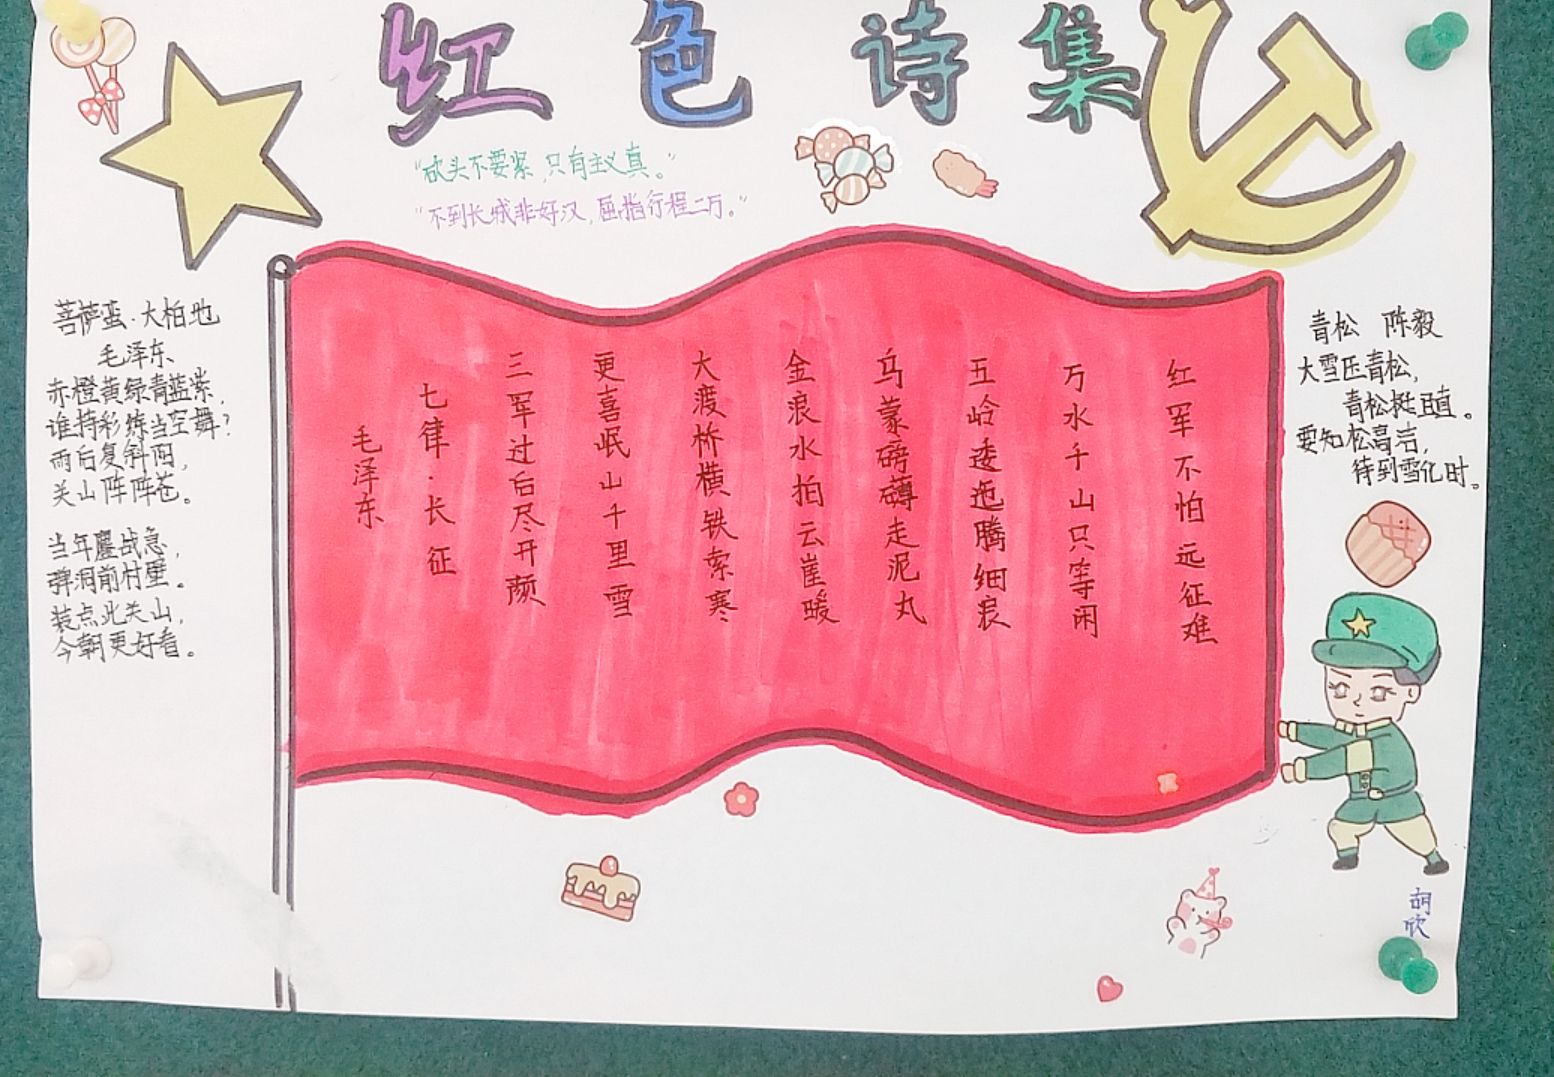 红色诗集
“砍头不要紧,只有主义真。”
“不到长城非好汉,屈指行程二万。”
菩萨蛮·大柏地
毛泽东
赤橙黄绿青蓝紫,
谁持彩练当空舞?
雨后复斜阳,
关山阵阵苍。
当年鏖战急,
弹洞前村壁。
装点此关山,
今朝更好看。
红军不怕远征难
万水千山只等闲
五岭逶迤腾细浪
乌蒙磅礴走泥丸
金浪水拍云崖暖
大渡桥横铁索寒
更喜岷山千里雪
三军过后尽开颜
七律·长征
毛泽东
青松 陈毅
大雪压青松,
青松挺且直。
要知松高岩,
待到雪化时。
胡欣